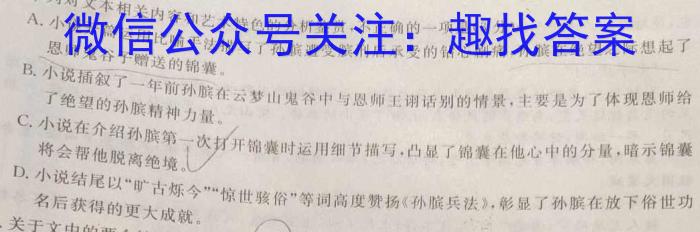 对文本相关内容和艺术特色的分析鉴赏，正确的一项是
微信公众号关注：趣找答案
A. 小 想起了
恩师鬼谷子赠送的锦囊。
B. 小说插叙了一年前孙膑在云梦山鬼谷中与恩师王诩话别的情景，主要是为了体现恩师给
了绝望的孙膑精神力量。
C. 小说在介绍孙膑第一次打开锦囊时运用细节描写，凸显了锦囊在他心中的分量，暗示锦囊
将会帮他脱离绝境。
D. 小说结尾以“旷古烁今”“惊世骇俗”等词高度赞扬《孙膑兵法》，彰显了孙膑在放下俗世功
名后获得的更大成就。
关于文中的两个